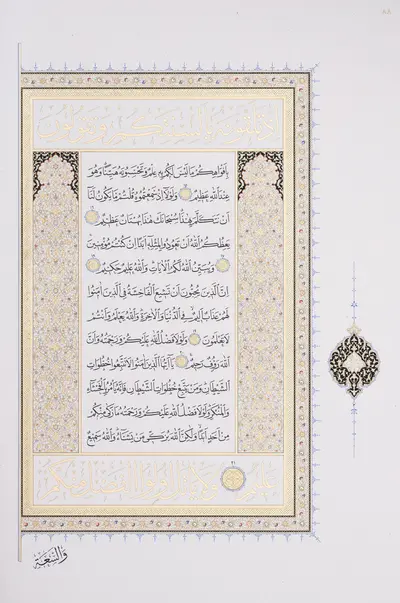 إِذْ تَلَقَّوْنَهُ بِأَلْسِنَتِكُمْ وَتَقُولُونَ
بِأَفْوَاهِكُمْ مَا لَيْسَ لَكُمْ بِهِ عِلْمٌ وَتَحْسَبُونَهُ هَيِّنًا وَهُوَ
عِنْدَ اللَّهِ عَظِيمٌ وَلَوْلَا إِذْ سَمِعْتُمُوهُ قُلْتُمْ مَا يَكُونُ لَنَا
أَنْ نَتَكَلَّمَ بِهَذَا سُبْحَانَكَ هَذَا بُهْتَانٌ عَظِيمٌ
يَعِظُكُمُ اللَّهُ أَنْ تَعُودُوا لِمِثْلِهِ أَبَدًا إِنْ كُنْتُمْ مُؤْمِنِينَ
وَيُبَيِّنُ اللَّهُ لَكُمُ الْآيَاتِ وَاللَّهُ عَلِيمٌ حَكِيمٌ
إِنَّ الَّذِينَ يُحِبُّونَ أَنْ تَشِيعَ الْفَاحِشَةُ فِي الَّذِينَ آمَنُوا
لَهُمْ عَذَابٌ أَلِيمٌ فِي الدُّنْيَا وَالْآخِرَةِ وَاللَّهُ يَعْلَمُ وَأَنْتُمْ
لَا تَعْلَمُونَ وَلَوْلَا فَضْلُ اللَّهِ عَلَيْكُمْ وَرَحْمَتُهُ وَأَنَّ
اللَّهَ رَؤُفٌ رَحِيمٌ يَا أَيُّهَا الَّذِينَ آمَنُوا لَا تَتَّبِعُوا خُطُوَاتِ
الشَّيْطَانِ وَمَنْ يَتَّبِعْ خُطُوَاتِ الشَّيْطَانِ فَإِنَّهُ يَأْمُرُ بِالْفَحْشَاءِ
وَالْمُنْكَرِ وَلَوْلَا فَضْلُ اللَّهِ عَلَيْكُمْ وَرَحْمَتُهُ مَا زَكَى مِنْكُمْ
مِنْ أَحَدٍ أَبَدًا وَلَكِنَّ اللَّهَ يُزَكِّي مَنْ يَشَاءُ وَاللَّهُ سَمِيعٌ
عَلِيمٌ وَلَا يَأْتَلِ أُولُوا الْفَضْلِ مِنْكُمْ
وَالسَّعَةِ